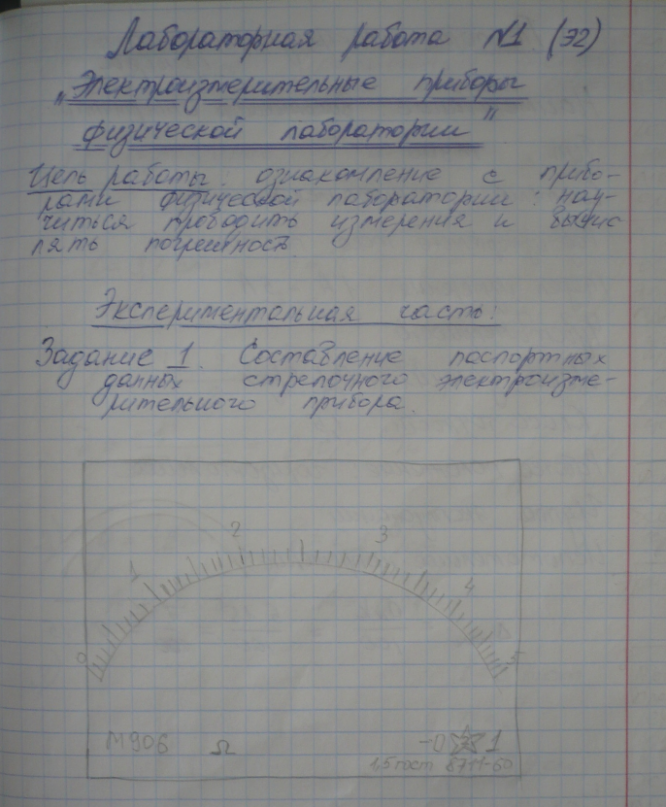 Лабораторная работа №1 (Э2)
„Электроизмерительные приборы
физической лаборатории"
Цель работы: ознакомление с прибо-
рами физической лаборатории: нау-
читься проводить измерения и вычис
лять погрешность.
Экспериментальная часть:
Задание 1. Составление паспортных
данных стрелочного электроизме-
рительного прибора.
0 1 2 3 4 5
М906 Ω 1
1,5 гост 8711-60